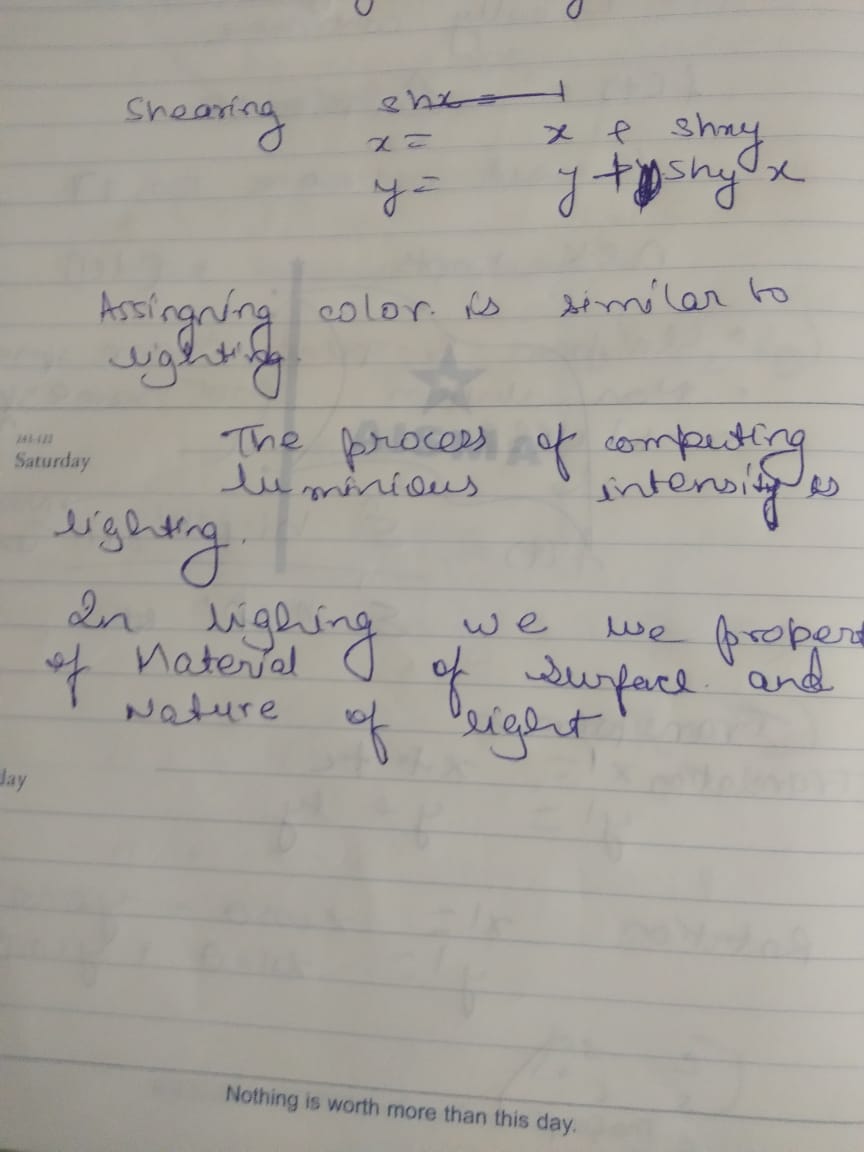 Shearing shx = 1
x = x + shxy
y = y + shy x
Assingning color. is similar to
lighting.
The process of computing
Saturday
luminious intensity is
lighting.
In lighing we we propert
of Material of surface. and
Nature of light
day
Nothing is worth more than this day.